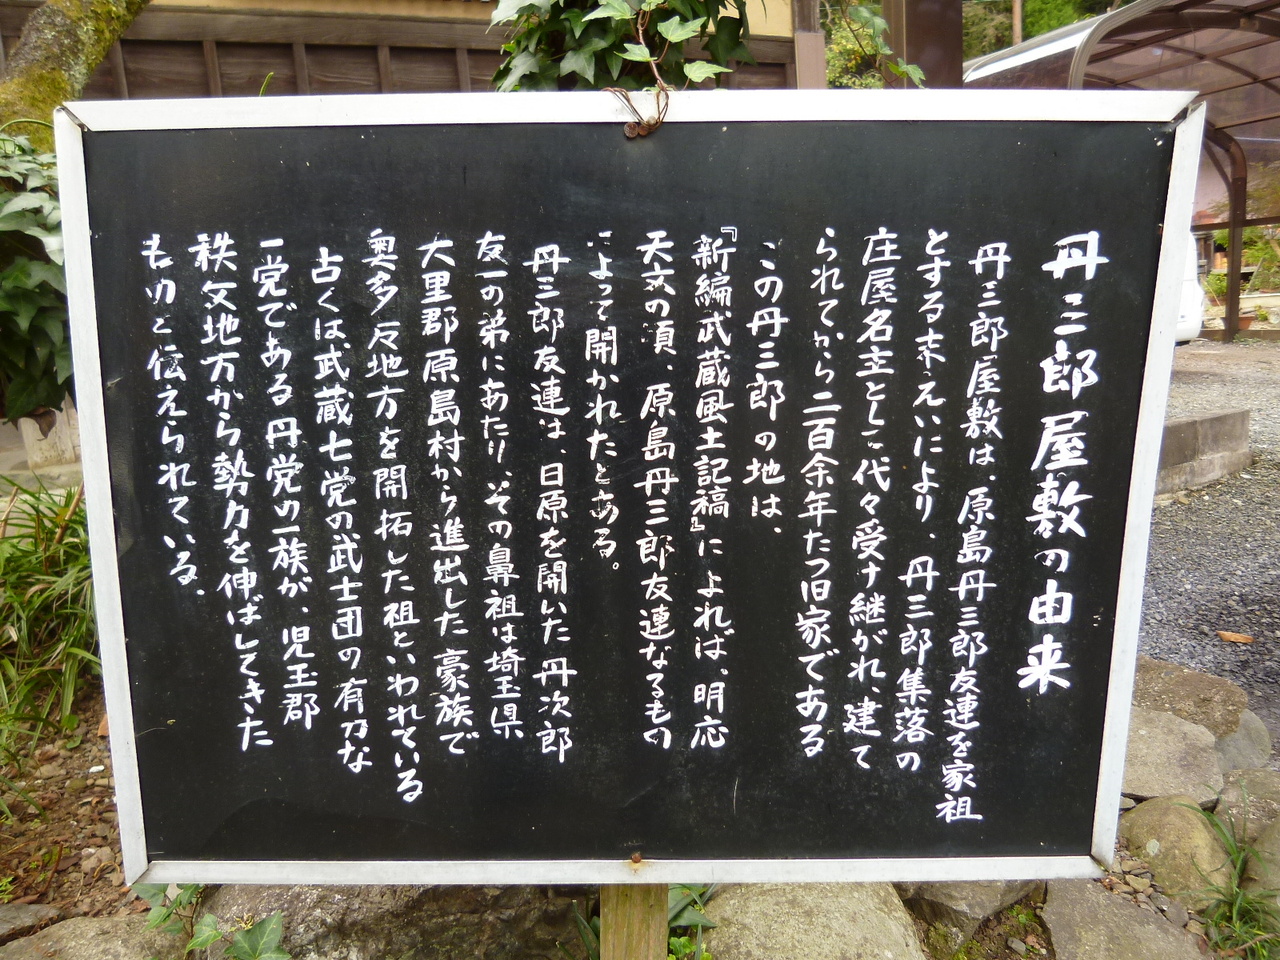 丹三郎屋敷の由来
丹三郎屋敷は、原島丹三郎友連を家祖
とする末えいにより、丹三郎集落の
庄屋名主として代々受け継がれ、建て
られてから二百余年たつ旧家である
この丹三郎の地は、
『新編武蔵風土記稿』によれば、明応
天文の頃、原島丹三郎友連なるもの
によって開かれたとある。
丹三郎友連は、日原を開いた丹次郎
友一の弟にあたり、その鼻祖は埼玉県
大里郡原島村から進出した豪族で
奥多反地方を開拓した祖といわれている
古くは、武蔵七党の武士団の有力な
一党である丹党の一族が、児玉郡
秩父地方から勢力を伸ばしてきた
ものと伝えられている.